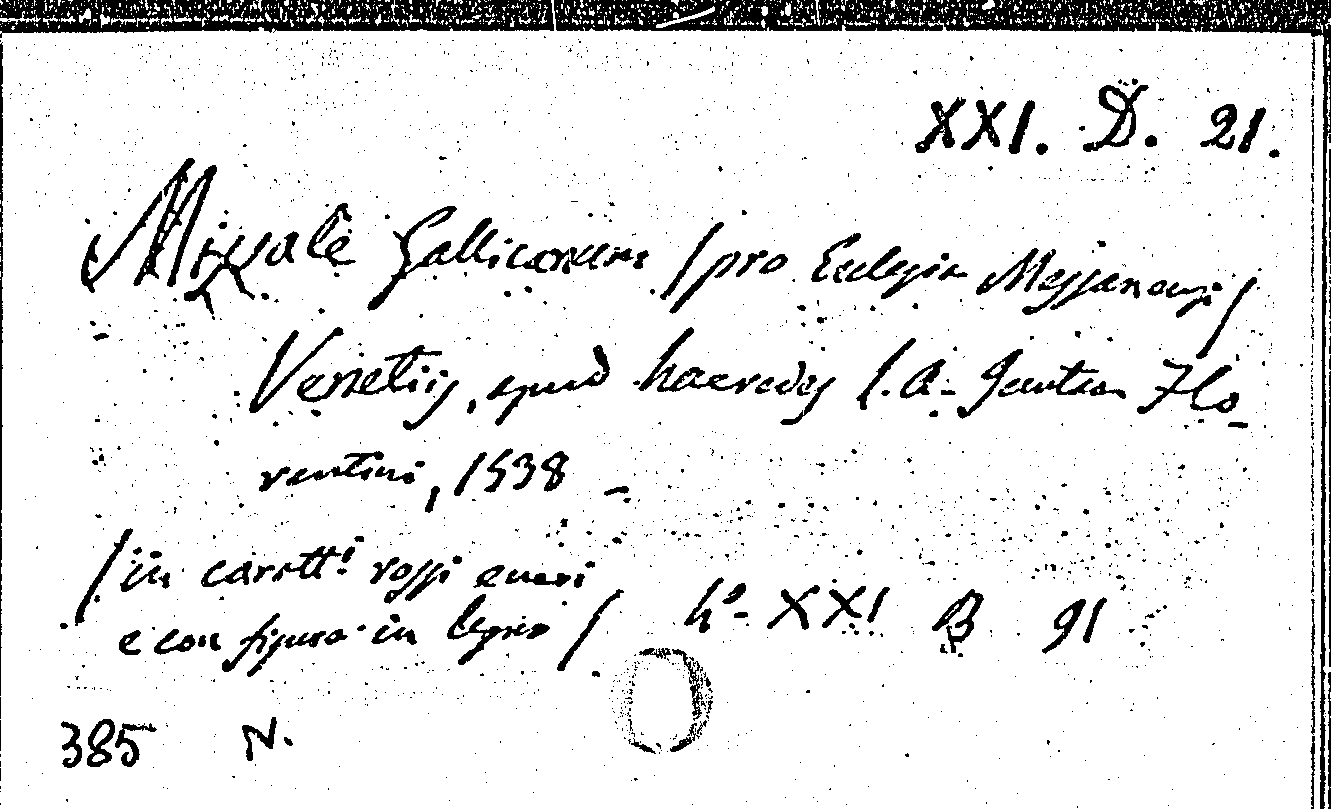 XXI. D. 21.
Missale Gallicanum / pro Ecclesia Messanensi /
Venetiis, apud haeredes L. A. Juntae Flo-
rentini, 1538 -
/ in caratt.i rossi e neri
e con figure in legno / h° - XXI B 91
385 N.